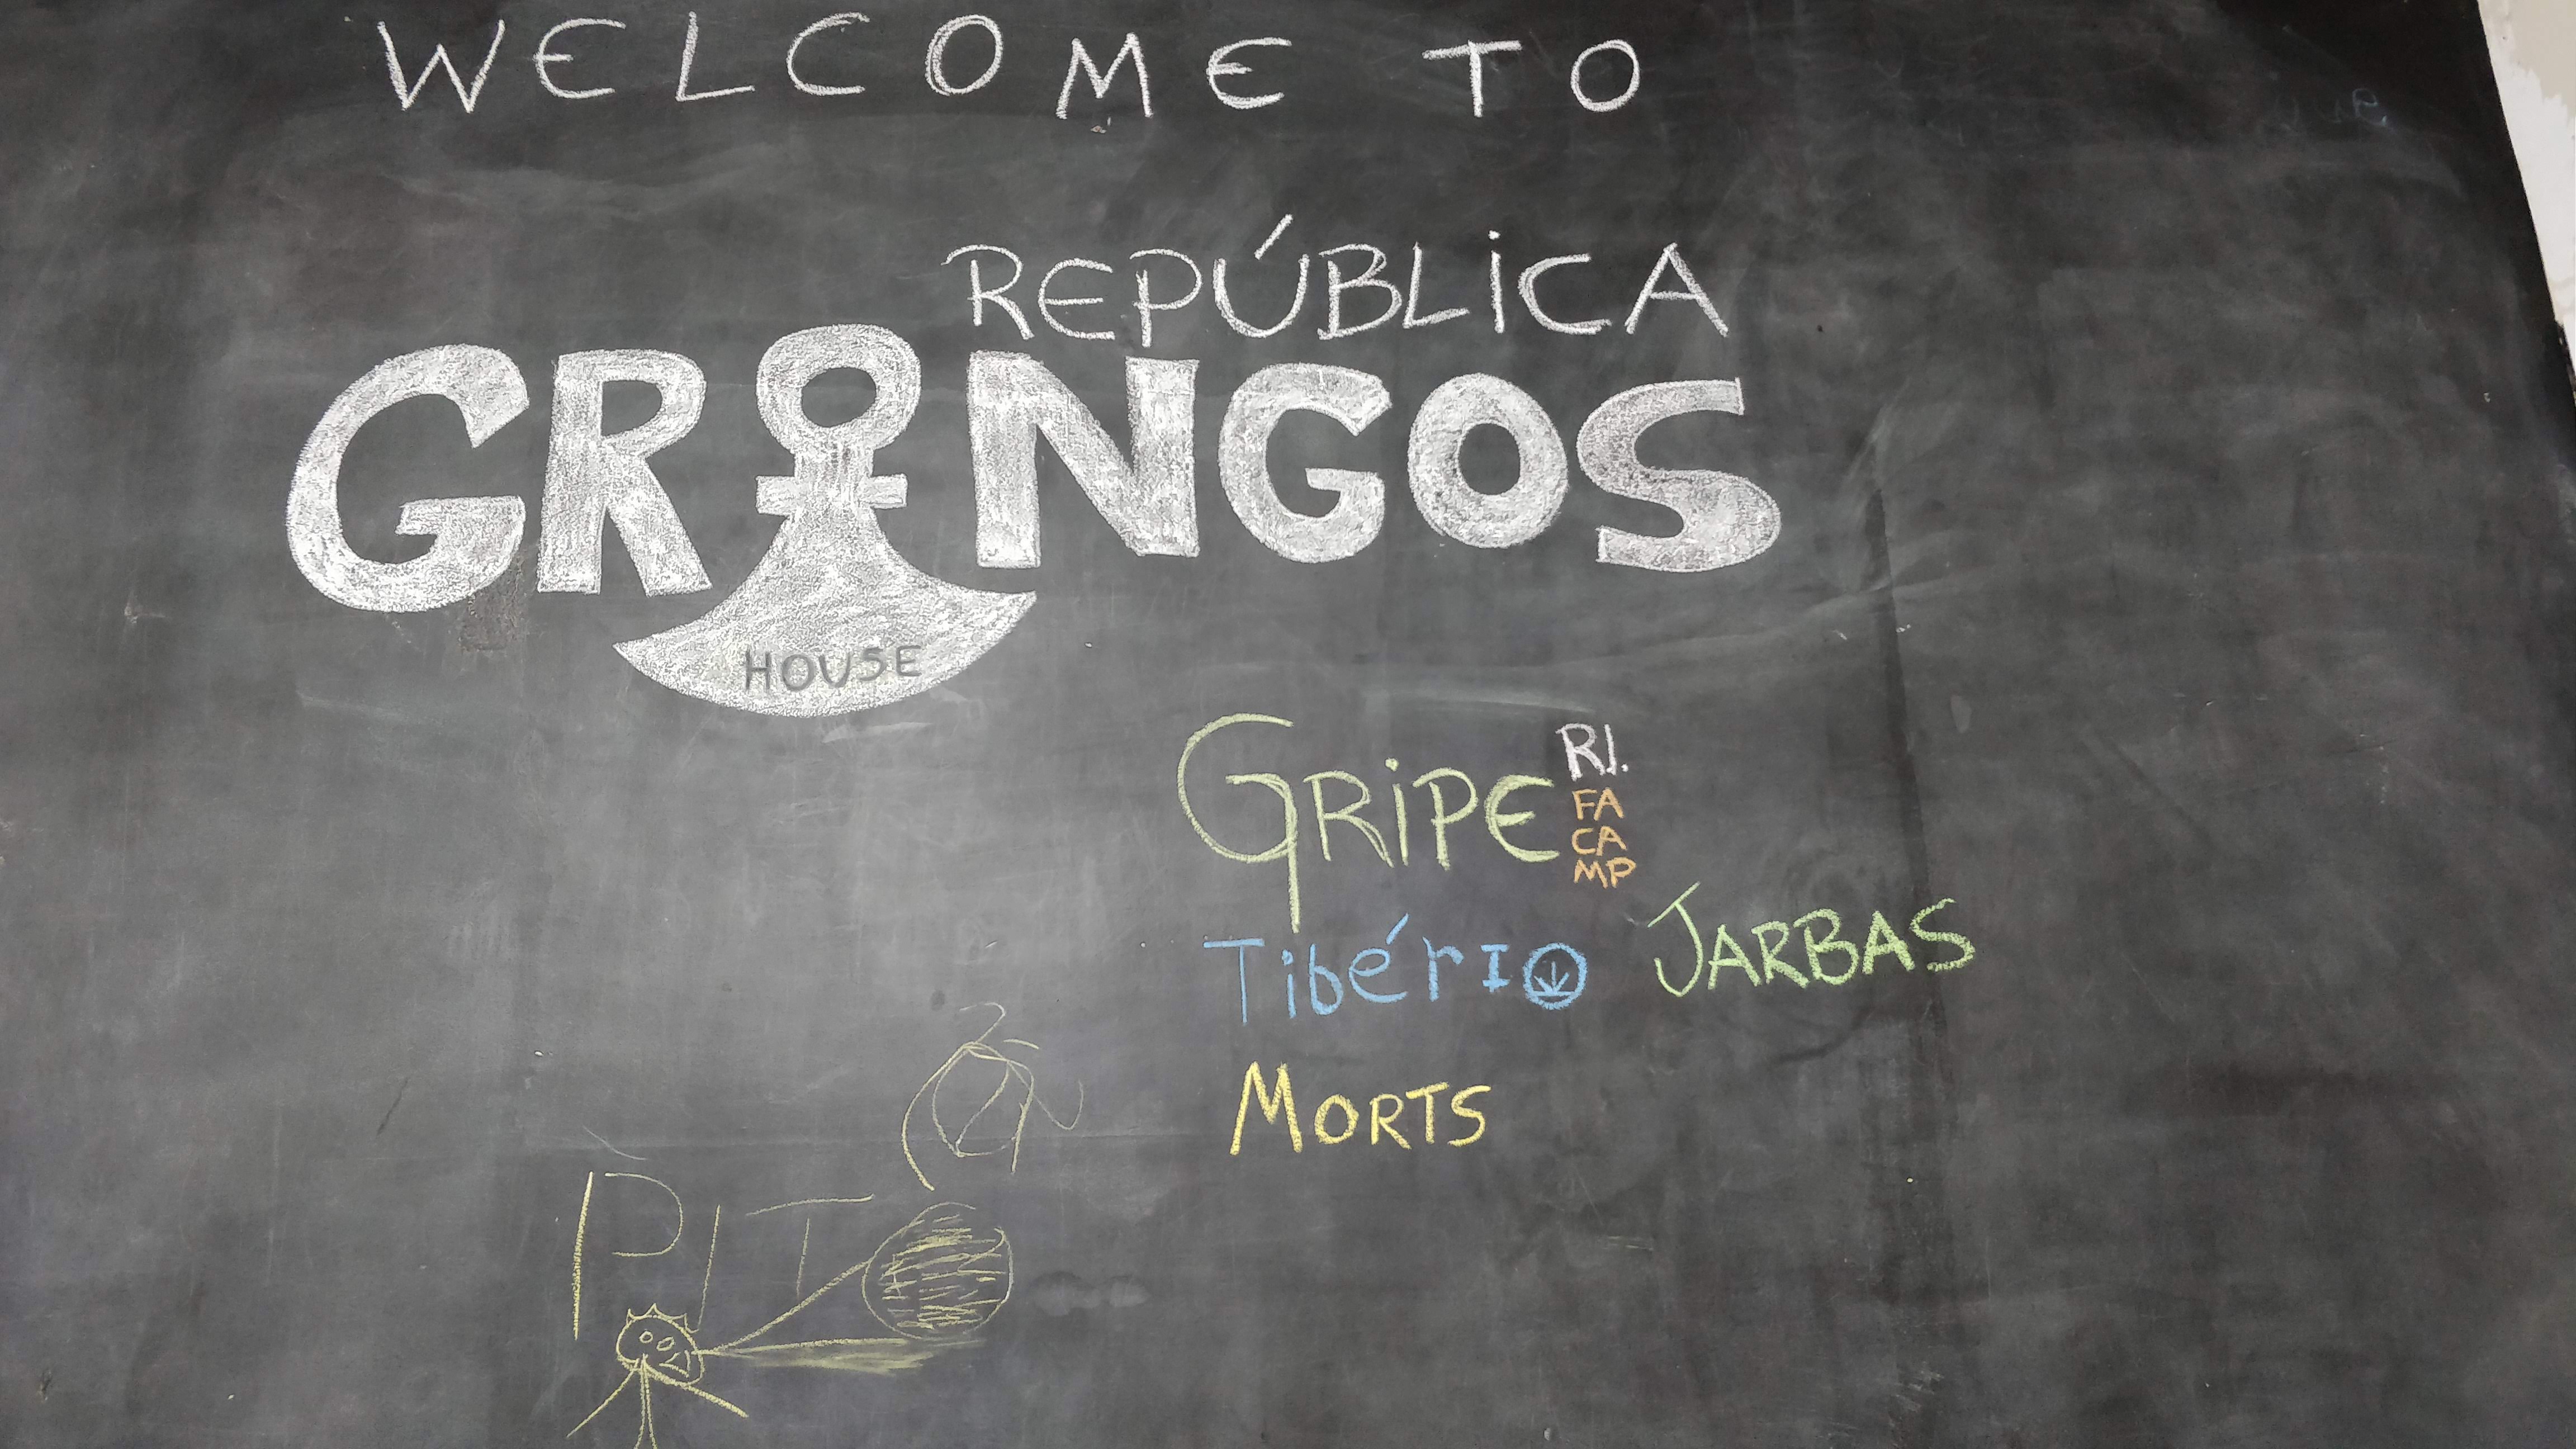 WELCOME TO
REPÚBLICA
GRINGOS
HOUSE
GRIPE RI.
FA
CA
MP
TIbérIO JARBAS
MORTS
PIT